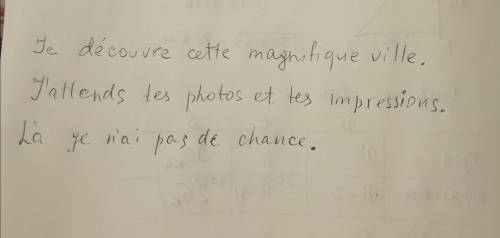 Je découvre cette magnifique ville.
J'attends tes photos et tes impressions.
Là ye n'ai pas de chance.